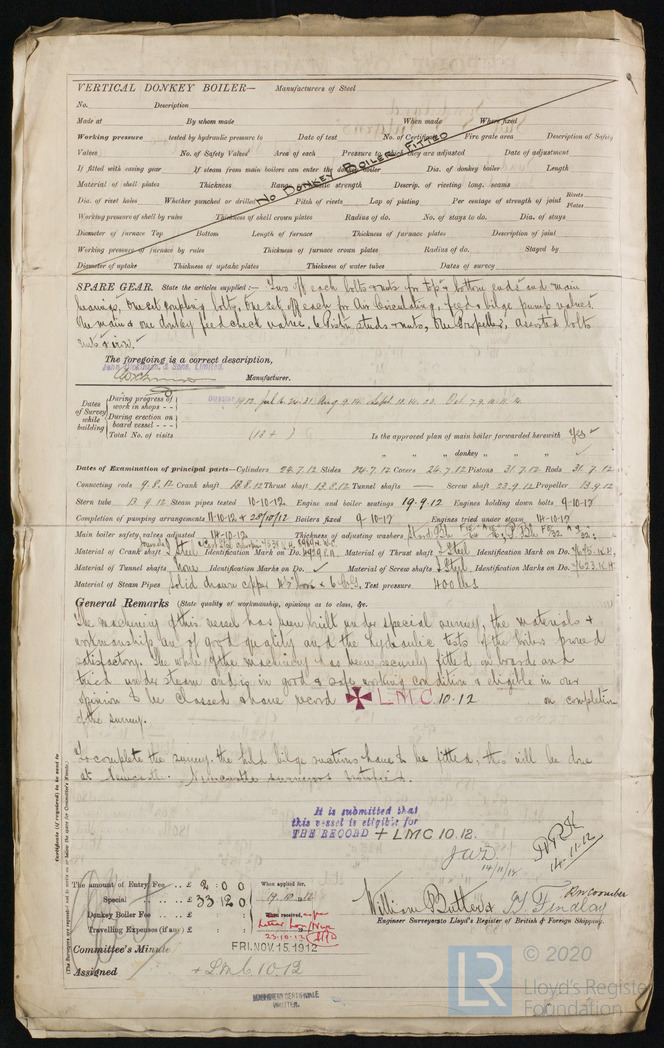 VERTICAL DONKEY BOILER— Manufacturers of Steel
No. Description
Made at By whom made When made Where fixed
Working pressure tested by hydraulic pressure to Date of test No. of Certificate Fire grate area Description of Safety
Valves No. of Safety Valves Area of each Pressure to which they are adjusted Date of adjustment
If fitted with easing gear If steam from main boilers can enter the donkey boiler Dia. of donkey boiler Length
Material of shell plates Thickness Range of tensile strength Descrip. of riveting long. seams
NO DONKEY BOILER FITTED
Dia. of rivet holes Whether punched or drilled Pitch of rivets Lap of plating Per centage of strength of joint Rivets Plates
Working pressure of shell by rules Thickness of shell crown plates Radius of do. No. of stays to do. Dia. of stays
Diameter of furnace Top Bottom Length of furnace Thickness of furnace plates Description of joint
Working pressure of furnace by rules Thickness of furnace crown plates Radius of do. Stayed by
Diameter of uptake Thickness of uptake plates Thickness of water tubes Dates of survey
SPARE GEAR. State the articles supplied:— Two off each bolts & nuts for top & bottom ends and main
bearings, One set coupling bolts, One set off each for Air Circulating, feed & bilge pump valves.
One main & one donkey feed check valve, 6 Piston studs & nuts, One Propeller, assorted bolts
nuts & iron.
The foregoing is a correct description,
John Dickinson & Sons, Limited.
Manufacturer.
Dates of Survey while building
During progress of work in shops - -
1912 Jul 6. 24. 31 Aug 9. 14. Sept 11. 14. 23. Oct. 7. 9. 10. 11. 14.
During erection on board vessel - - -
Total No. of visits (13 + ) Is the approved plan of main boiler forwarded herewith Yes
" " " donkey " " "
Dates of Examination of principal parts—Cylinders 24.7.12 Slides 24.7.12 Covers 24.7.12 Pistons 31.7.12 Rods 31.7.12
Connecting rods 9.8.12 Crank shaft 13.8.12 Thrust shaft 13.8.12 Tunnel shafts — Screw shaft 23.9.12 Propeller 13.9.12
Stern tube 13.9.12 Steam pipes tested 10-10-12 Engine and boiler seatings 19.9.12 Engines holding down bolts 9-10-12
Completion of pumping arrangements 11-10-12 & 28/10/12 Boilers fixed 9-10-12 Engines tried under steam 14-10-12
Main boiler safety valves adjusted 14-10-12 Thickness of adjusting washers
Material of Crank shaft I Steel Identification Mark on Do. Material of Thrust shaft I Steel Identification Mark on Do.
Material of Tunnel shafts none Identification Marks on Do. ✓ Material of Screw shafts I Steel Identification Marks on Do.
Material of Steam Pipes Solid drawn copper Test pressure 400 lbs
General Remarks (State quality of workmanship, opinions as to class, &c.
The machinery of this vessel has been built under special survey, the materials &
workmanship are of good quality and the hydraulic tests of the boiler proved
satisfactory. The whole of the machinery has been securely fitted on board and
tried under steam and is in good & safe working condition & eligible in our
opinion to be classed & have record ✠ LMC 10.12 on completion
of the survey.
To complete the survey the hold bilge suctions have to be fitted, this will be done
at Newcastle. Newcastle surveyors notified.
It is submitted that
this vessel is eligible for
THE RECORD + LMC 10.12.
JWD
14/11/12
14.11.12
Certificate (if required) to be sent to
(The Surveyors are requested not to write on or below the space for Committee's Minute.)
The amount of Entry Fee .. £ 2 : 0 : 0 When applied for,
Special .. £ 33 : 12 : 0 19.10.12
Donkey Boiler Fee .. £ : : When received,
Travelling Expenses (if any) £ : : 23.10.12
William Butler & G Findlow
Engineer Surveyors to Lloyd's Register of British & Foreign Shipping.
Committee's Minute FRI. NOV. 15. 1912
Assigned + LMC 10.12
MACHINERY CERTIFICATE
WRITTEN.
© 2020
LR
Lloyd's Register
Foundation